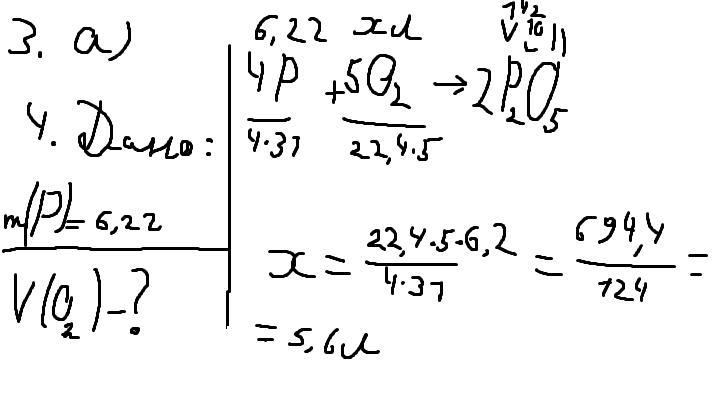 3. а)
4. Дано:
m(P)=6,2г
V(O₂)-?
6,2г xл
4P + 5O₂ → 2P₂O₅
4·31 22,4·5
x = 22,4·5·6,2 / 4·31 = 694,4 / 124 =
= 5,6л